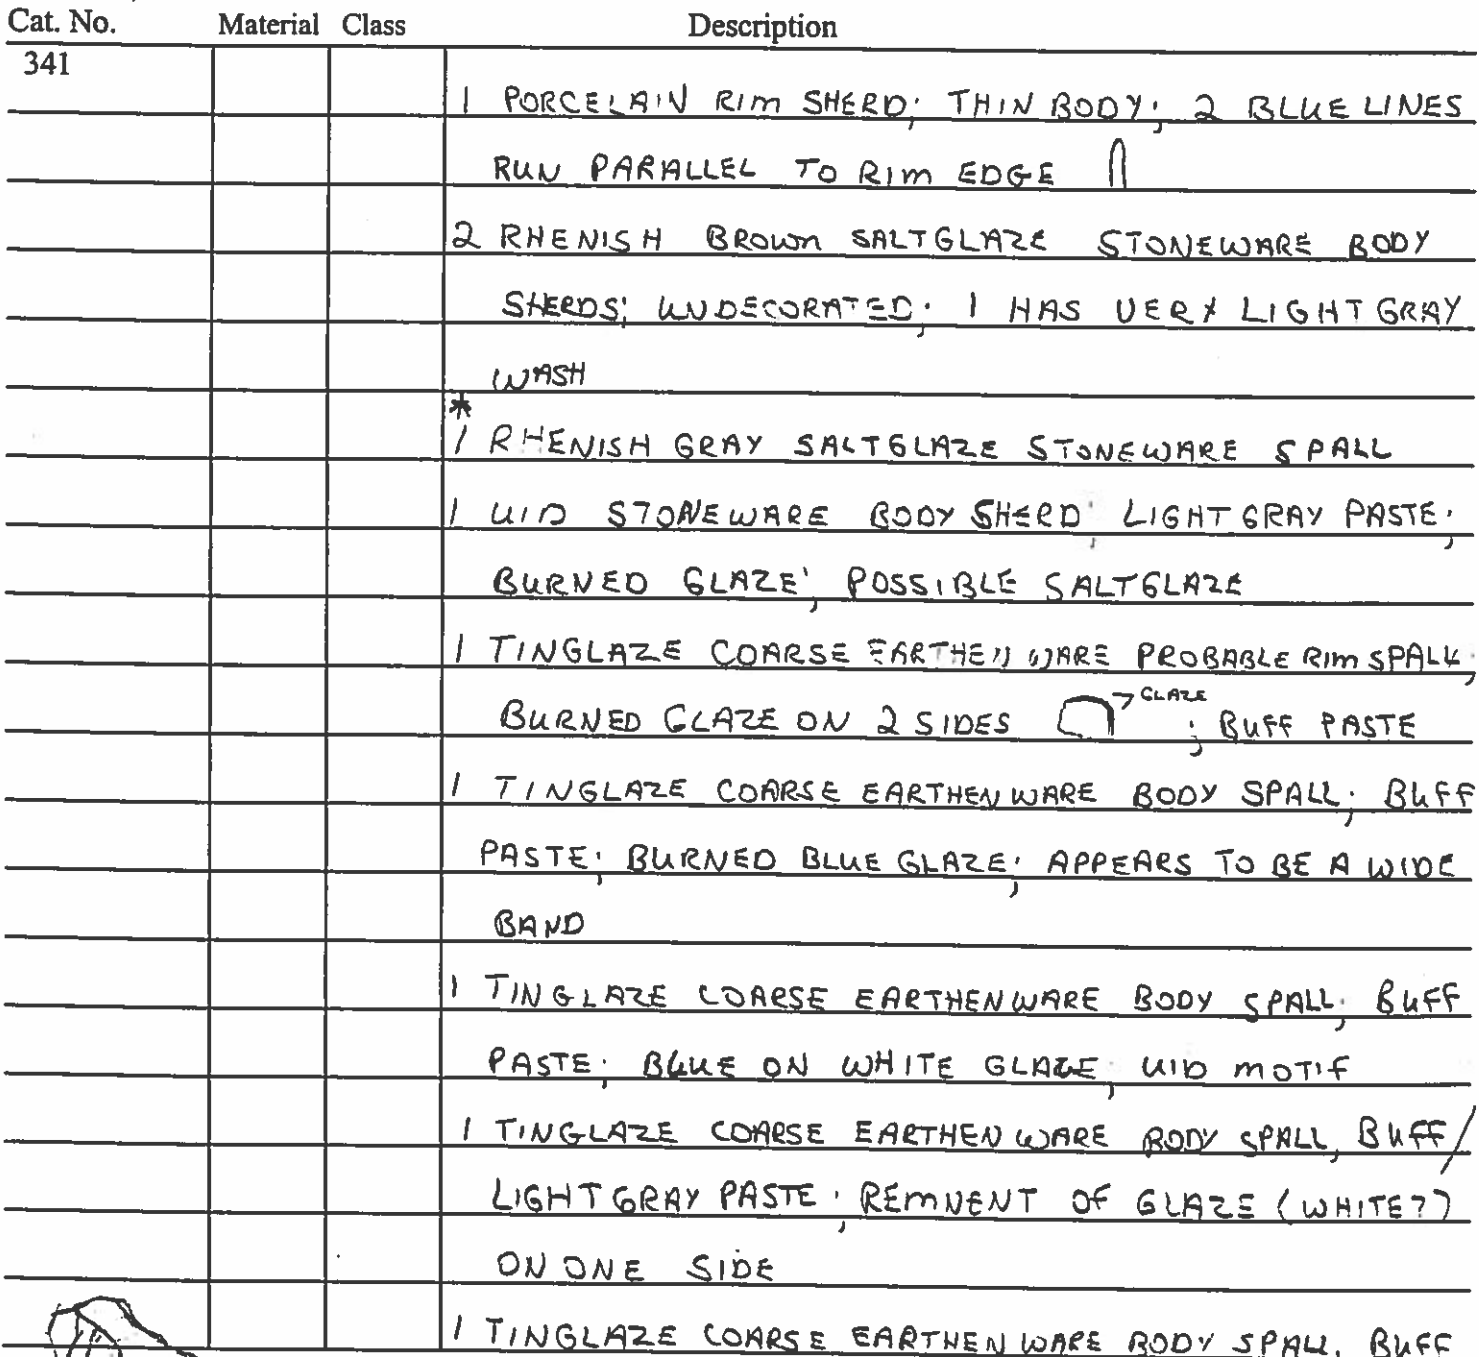 Cat. No. Material Class Description
341
1 PORCELAIN RIM SHERD; THIN BODY; 2 BLUE LINES
RUN PARALLEL TO RIM EDGE
2 RHENISH BROWN SALTGLAZE STONEWARE BODY
SHERDS; UNDECORATED; 1 HAS VERY LIGHT GRAY
WASH
*
1 RHENISH GRAY SALTGLAZE STONEWARE SPALL
1 UID STONEWARE BODY SHERD; LIGHT GRAY PASTE;
BURNED GLAZE; POSSIBLE SALTGLAZE
1 TINGLAZE COARSE EARTHENWARE PROBABLE RIM SPALL;
BURNED GLAZE ON 2 SIDES GLAZE ; BUFF PASTE
1 TINGLAZE COARSE EARTHENWARE BODY SPALL; BUFF
PASTE; BURNED BLUE GLAZE; APPEARS TO BE A WIDE
BAND
1 TINGLAZE COARSE EARTHENWARE BODY SPALL; BUFF
PASTE; BLUE ON WHITE GLAZE, UID MOTIF
1 TINGLAZE COARSE EARTHENWARE BODY SPALL, BUFF/
LIGHT GRAY PASTE; REMNENT OF GLAZE (WHITE?)
ON ONE SIDE
1 TINGLAZE COARSE EARTHENWARE BODY SPALL, BUFF